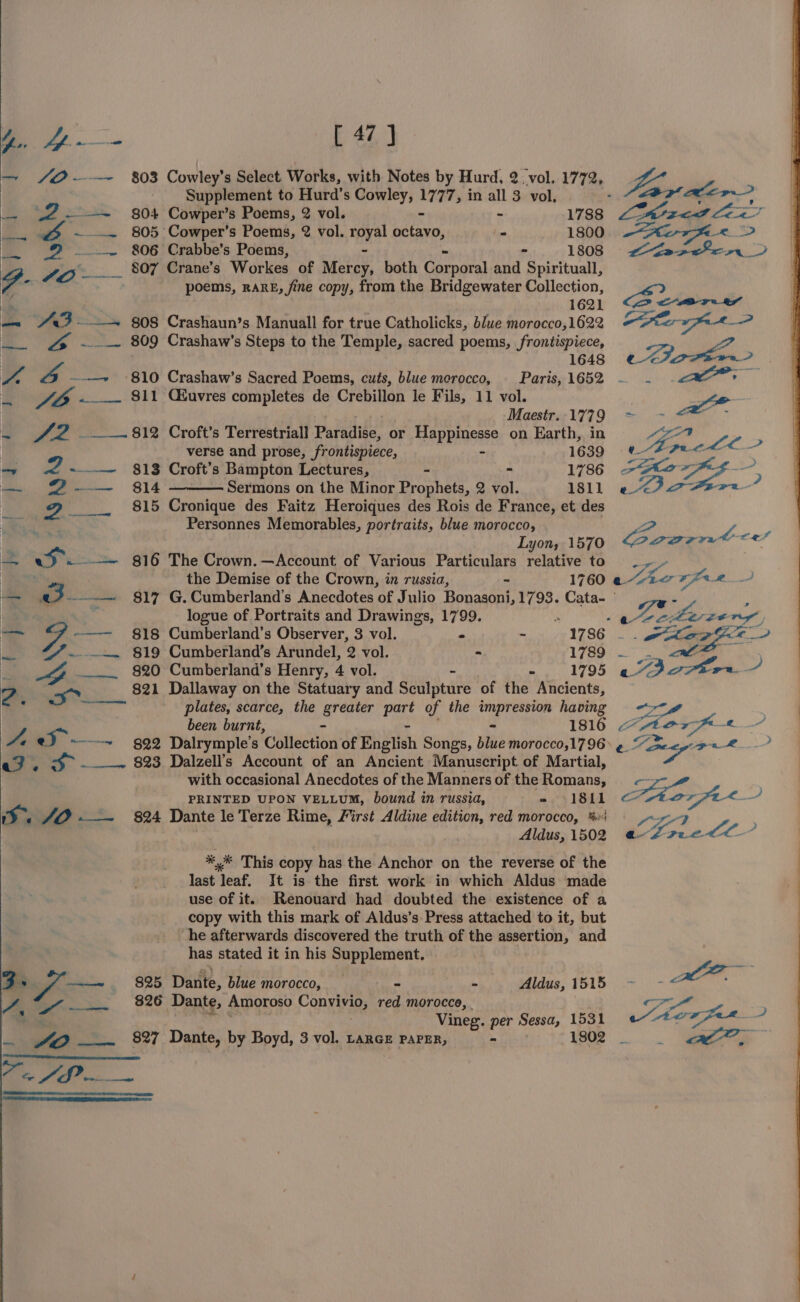 [ 47 ]
4 „ 4 „ —
— 10 — 803 Cowley's Select Works, with Notes by Hurd, 2 vol. 1772,
Supplement to Hurd's Cowley, 1777, in all 3 vol. -
— 2 — 804 Cowper's Poems, 2 vol. - - 1788
— 6 — 805 Cowper's Poems, 2 vol. royal octavo, - 1800 Thorpe
— 2 — 806 Crabbe's Poems, - - - 1808
9 „ 10 — 807 Crane's Workes of Mercy, both Corporal and Spirituall,
poems, RARE, fine copy, from the Bridgewater Collection,
1621
— 13 — 808 Crashaun's Manuall for true Catholicks, blue morocco, 1622 Thorpe
— 6 — 809 Crashaw's Steps to the Temple, sacred poems, frontispiece,
1648 Bohn
1 „ 6 — 810 Crashaw's Sacred Poems, cuts, blue morocco, Paris, 1652 - - do.
— 16 — 811 Œuvres completes de Crebillon le Fils, 11 vol.
Maestr. 1779 - - do
— 12 — 812 Croft's Terrestriall Paradise, or Happinesse on Earth, in
verse and prose, frontispiece, - 1639 Triell
— 2 — 813 Croft's Bampton Lectures, - - 1786 Thorpe
— 2 — 814 ——— Sermons on the Minor Prophets, 2 vol. 1811 Bohn
— 2 — 815 Cronique des Faitz Heroiques des Rois de France, et des
Personnes Memorables, portraits, blue morocco,
Lyon, 1570
— 5 — 816 The Crown.—Account of Various Particulars relative to
the Demise of the Crown, in russia, - 1760 Thorpe
— 3 — 817 G. Cumberland's Anecdotes of Julio Bonasoni, 1793. Cata-
logue of Portraits and Drawings, 1799. - -
— 9 — 818 Cumberland's Observer, 3 vol. - - 1786 - - Thorpe
— 7 — 819 Cumberland's Arundel, 2 vol. - 1789 - - do
— 4 — 820 Cumberland's Henry, 4 vol. - - 1795 Bohn
2 „ 5 — 821 Dallaway on the Statuary and Sculpture of the Ancients,
plates, scarce, the greater part of the impression having
been burnt, - - - 1816 Thorpe
1 „ 5 — 822 Dalrymple's Collection of English Songs, blue morocco, 1796
3 „ 5 — 823 Dalzell's Account of an Ancient Manuscript of Martial,
with occasional Anecdotes of the Manners of the Romans,
PRINTED UPON VELLUM, bound in russia, - 1811 Thorpe
5 „ 10 — 824 Dante le Terze Rime, First Aldine edition, red morocco,
Aldus, 1502 Triell
*** This copy has the Anchor on the reverse of the
last leaf. It is the first work in which Aldus made
use of it. Renouard had doubted the existence of a
copy with this mark of Aldus's Press attached to it, but
he afterwards discovered the truth of the assertion, and
has stated it in his Supplement.
3 „ 7 — 825 Dante, blue morocco, - - Aldus, 1515 - - do
1 „ 7 — 826 Dante, Amoroso Convivio, red morocco,
Vineg. per Sessa, 1531 Thorpe
— 10 — 827 Dante, by Boyd, 3 vol. LARGE PAPER, - 1802 - - do.